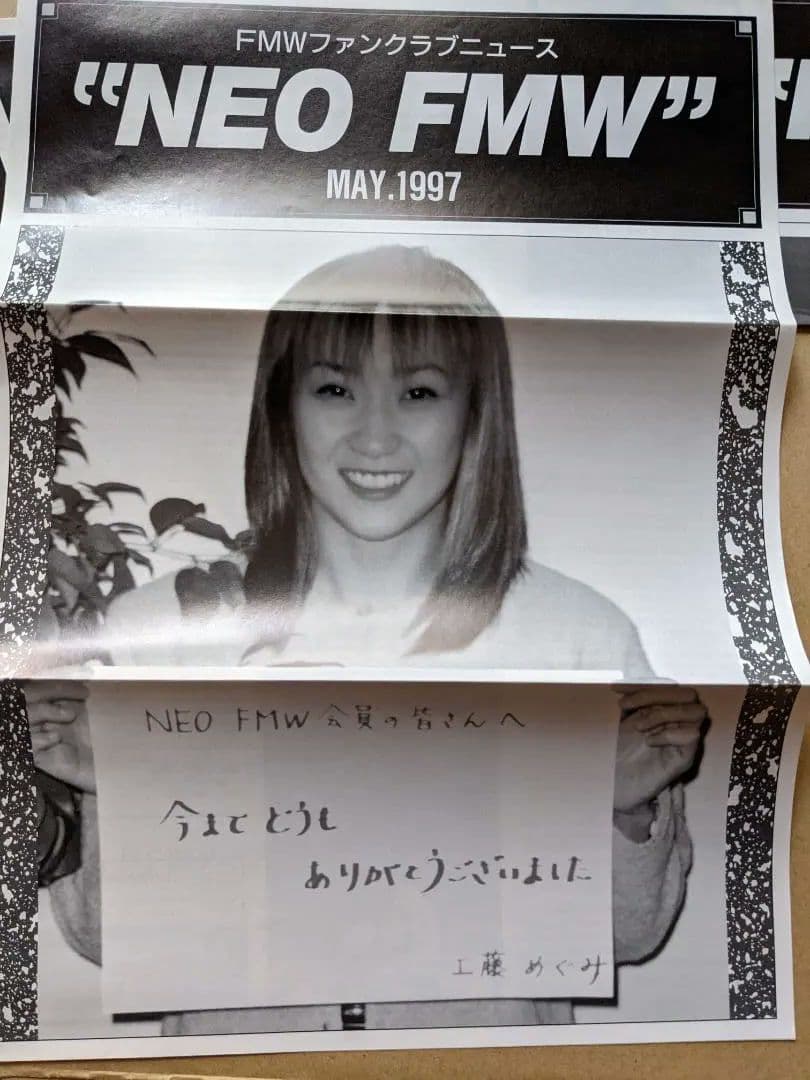 FMWファンクラブニュース
“NEO FMW”
MAY.1997
NEO FMW 会員の皆さんへ
今までどうも
ありがとうございました
工藤 めぐみ